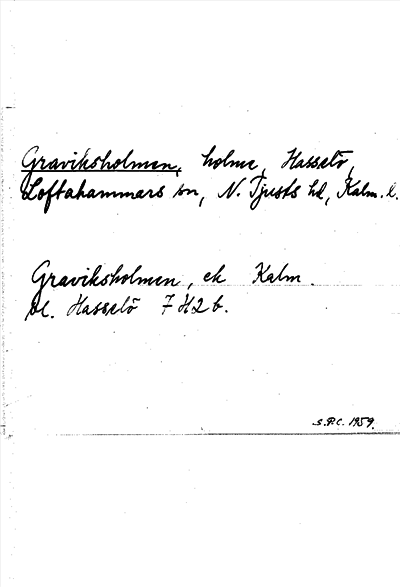 Graviksholmen, holme, Hasselö,
Loftahammars sn, N. Tjusts hd, Kalm. l.
Graviksholmen, ek Kalm.
bl. Hasselö 7 H2 b.
S.P.C. 1959.